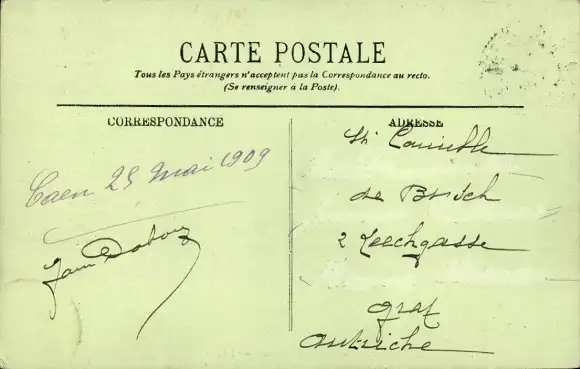 CARTE POSTALE
Tous les Pays étrangers n'acceptent pas la Correspondance au recto.
(Se renseigner à la Poste).
CORRESPONDANCE
Caen 25 Mai 1909
ADRESSE
de
2 Leechgasse
Graz
Autriche